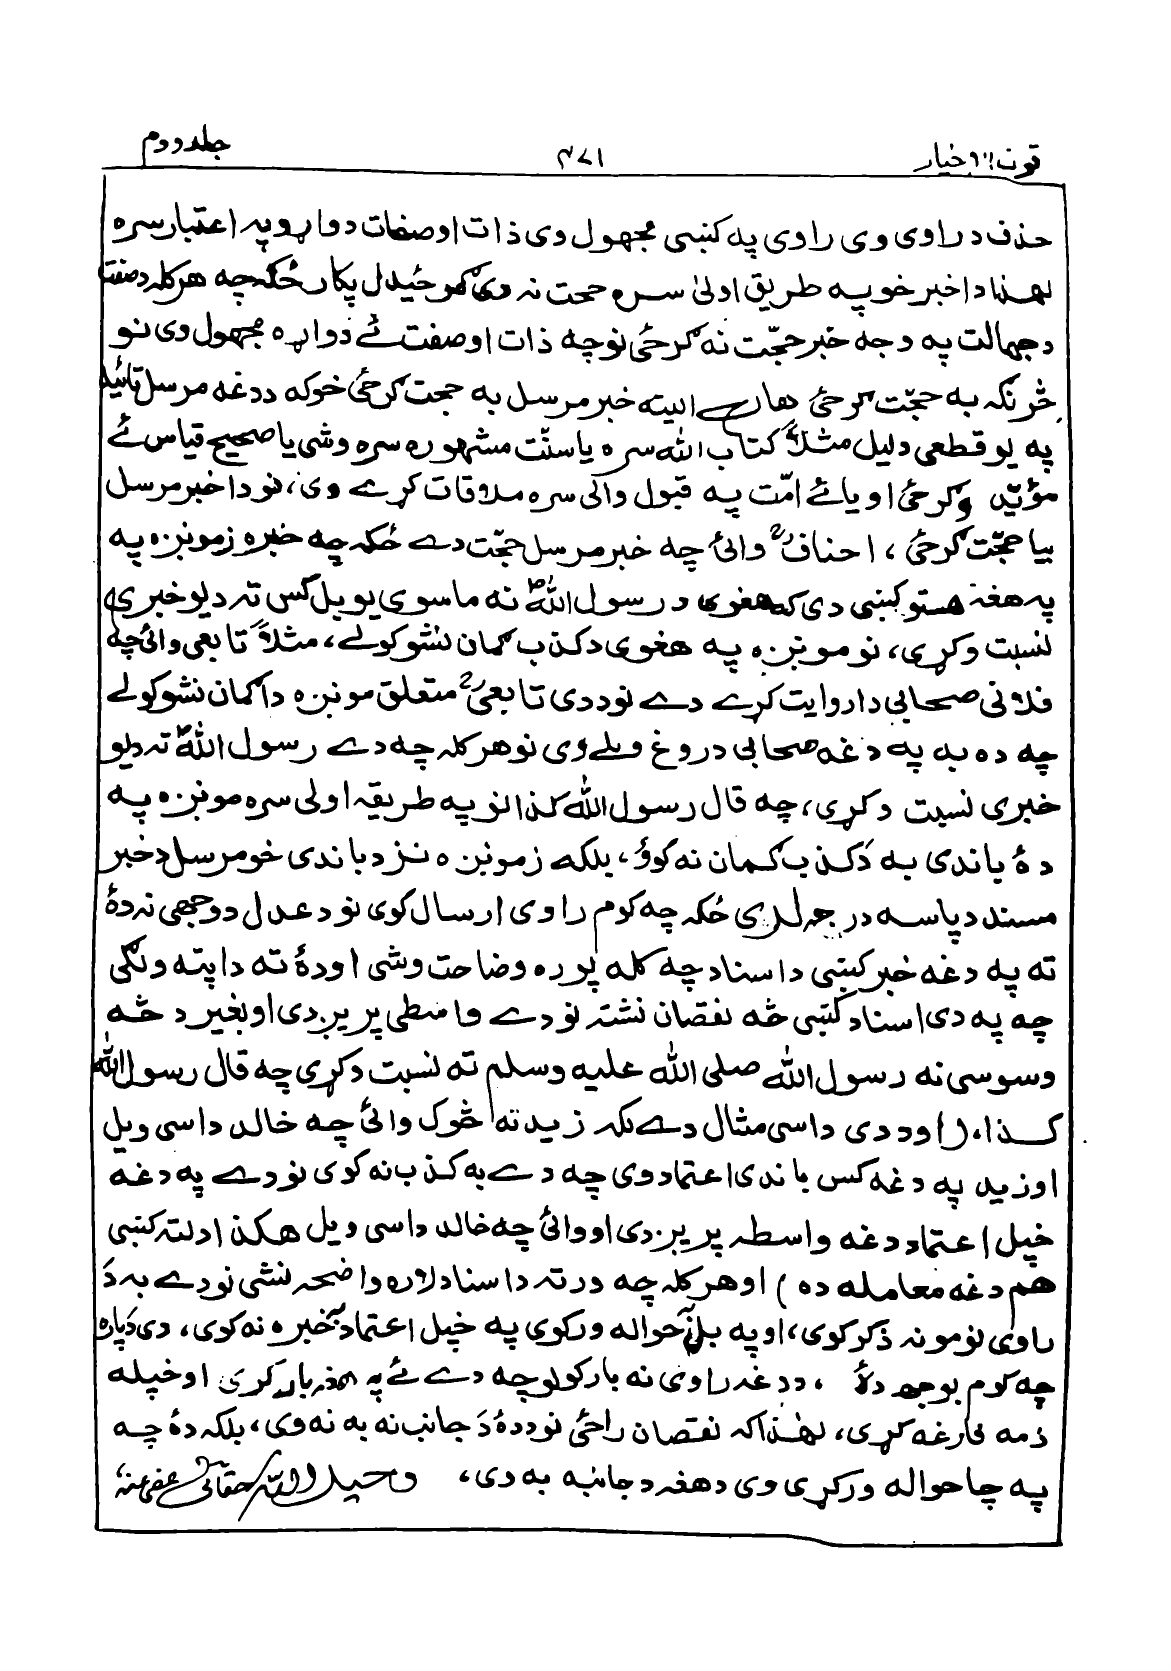 قوت الاخیار ۴۷۱ جلد دوم
حذف د راوی وی راوی په کښې مجهول وی ذات او صفات دواړو په اعتبار سره
لهذا دا خبر خو په طریق اولیٰ سره حجت نه وی ګرځیدل پکار ځکه چه هر کله د صفت
د جهالت په وجه خبر حجّت نه ګرځی نو چه ذات او صفت ئے دواړه مجهول وی نو
څرنګه به حجّت ګرځی هاں البته خبر مرسل به حجت ګرځی خو که د دغه مرسل تائید
په یو قطعی دلیل مثلاً کتاب الله سره یا سنّت مشهوره سره وشی یا صحیح قیاس ئے
مؤیّد وګرځی او یا ئے امّت په قبول والی سره ملاقات کړے وی، نو دا خبر مرسل
بیا حجّت ګرځی، احناف وائی چه خبر مرسل حجّت دے ځکه چه خبره زمونږه په
په هغه هستو کښې دی که هغوی د رسول الله ﷺ نه ماسوی یو بل کس ته د یو خبری
نسبت وکړی، نو مونږه په هغوی د کذب ګمان نشو کولے، مثلاً تابعی وائی چه
فلانی صحابی دا روایت کړے دے نو د دی تابعی متعلق مونږه دا ګمان نشو کولے
چه ده به په دغه صحابی دروغ ویلے وی نو هر کله چه دے رسول الله ﷺ ته د یو
خبری نسبت وکړی، چه قال رسول الله کذا نو په طریقه اولی سره مونږه په
دهٔ باندی به دَ کذب ګمان نه کوؤ، بلکه زمونږه نزد باندی خو مرسل د خبر
مسند د پاسه درجه لری ځکه چه کوم راوی ارسال کوی نو د عدل د وجهی نه دهٔ
ته په دغه خبر کښې د اسناد چه کله پوره وضاحت وشی او دهٔ ته دا پته ولګی
چه په دی اسناد کښې څه نقصان نشته نو دے واسطی پریږدی او بغیر د څه
وسوسی نه رسول الله صلی الله علیه وسلم ته نسبت وکړی چه قال رسول الله
کذا، (او د دی داسی مثال دے لکه زید ته څوک وائی چه خالد داسی ویل
او زید په دغه کس باندی اعتماد وی چه دے به کذب نه کوی نو دے په دغه
خپل اعتماد دغه واسطه پریږدی او وائی چه خالد داسی ویل هکذا دلته کښې
هم دغه معامله ده) او هر کله چه ورته د اسناد لاره واضحه نشی نو دے به دَ
راوی نومونه ذکر کوی، او په بل حواله ورکوی په خپل اعتماد خبره نه کوی، دی دَپاره
چه کوم بوجه دهٔ، د دغه راوی نه بار کولو چه دے ئے په بار کړی او خپله
ذمه فارغه کړی، لهٰذا که نقصان راځی نو د دهٔ دَ جانب نه به نه وی، بلکه دهٔ چه
په چا حواله ورکړی وی د هغه د جانبه به دی، وحید الله حقانی عفی عنه